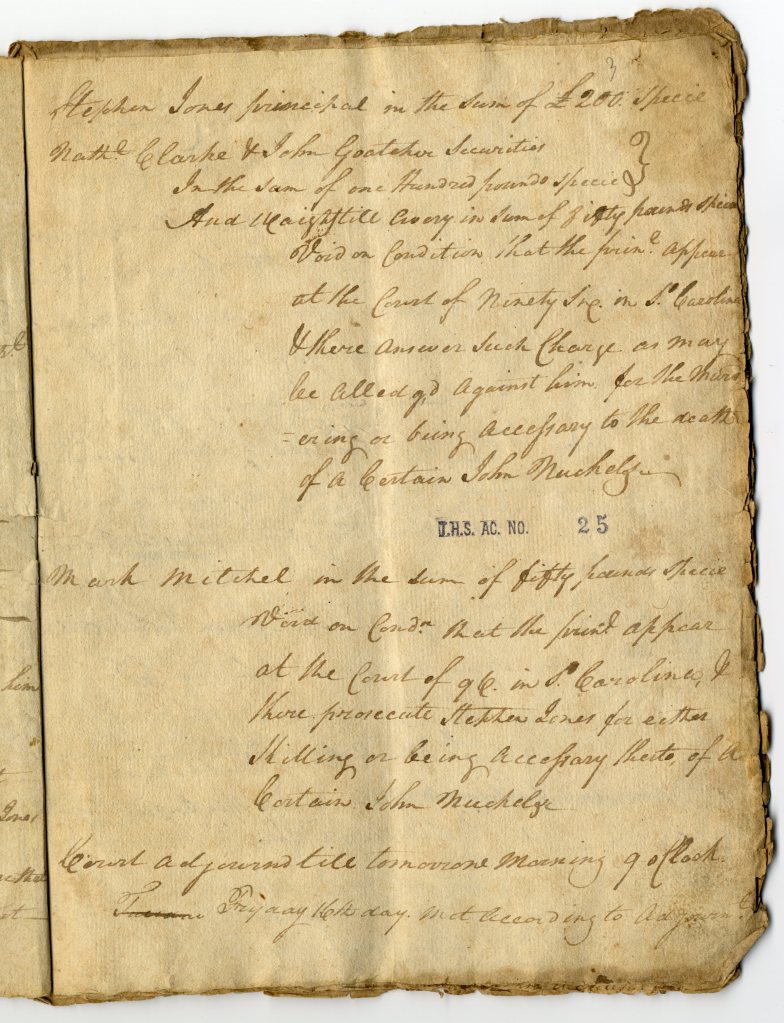 3
Stephen Jones principal in the sum of £200 Specie
Nathl. Clarke & John Goatcher Securities
In the sum of one Hundred pounds specie }
And Waightstill Avery in sum of fifty pounds specie
Void on Condition that the prinl. appear
at the Court of Ninety Six. in So. Carolina
& there answer such Charge as may
be alledg'd against him for the Murd
=ering or being accessary to the death
of a Certain John Nuckels
T.H.S. AC. NO. 25
Mark Mitchel in the sum of fifty pounds specie
Void on Condn. that the prinl. appear
at the Court of 96. in So. Carolina, &
there prosecute Stephen Jones for either
killing or being accessary thereto, of a
Certain John Nuckels
Court adjournd till tomorrone morning 9 oClock
Fryday 16th day. Met According to Adjournt.
him
Jones